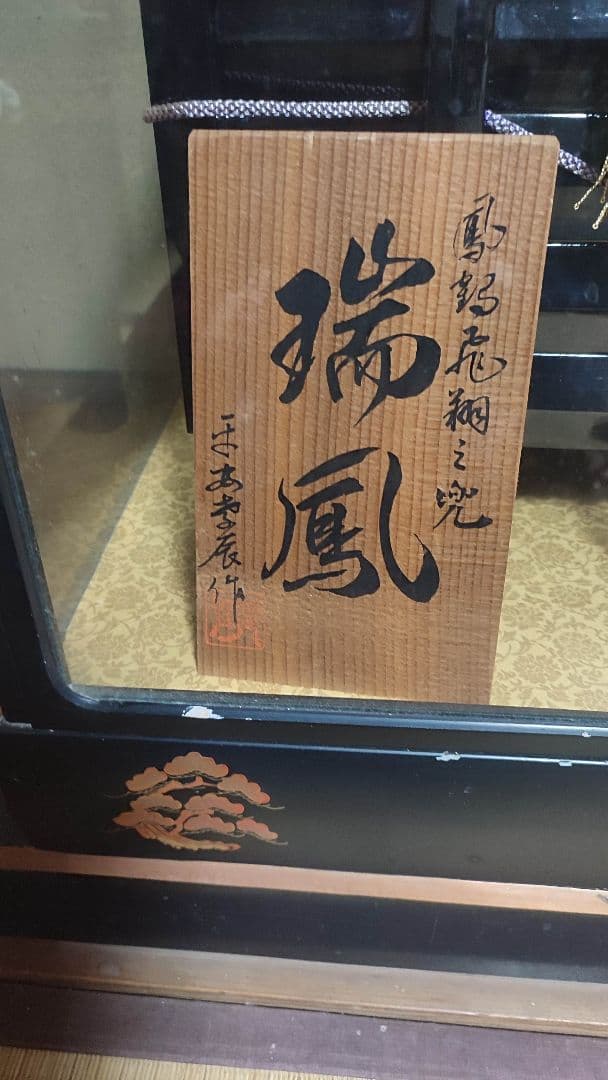 鳳鶴飛翔之兜
瑞鳳
平安李辰作